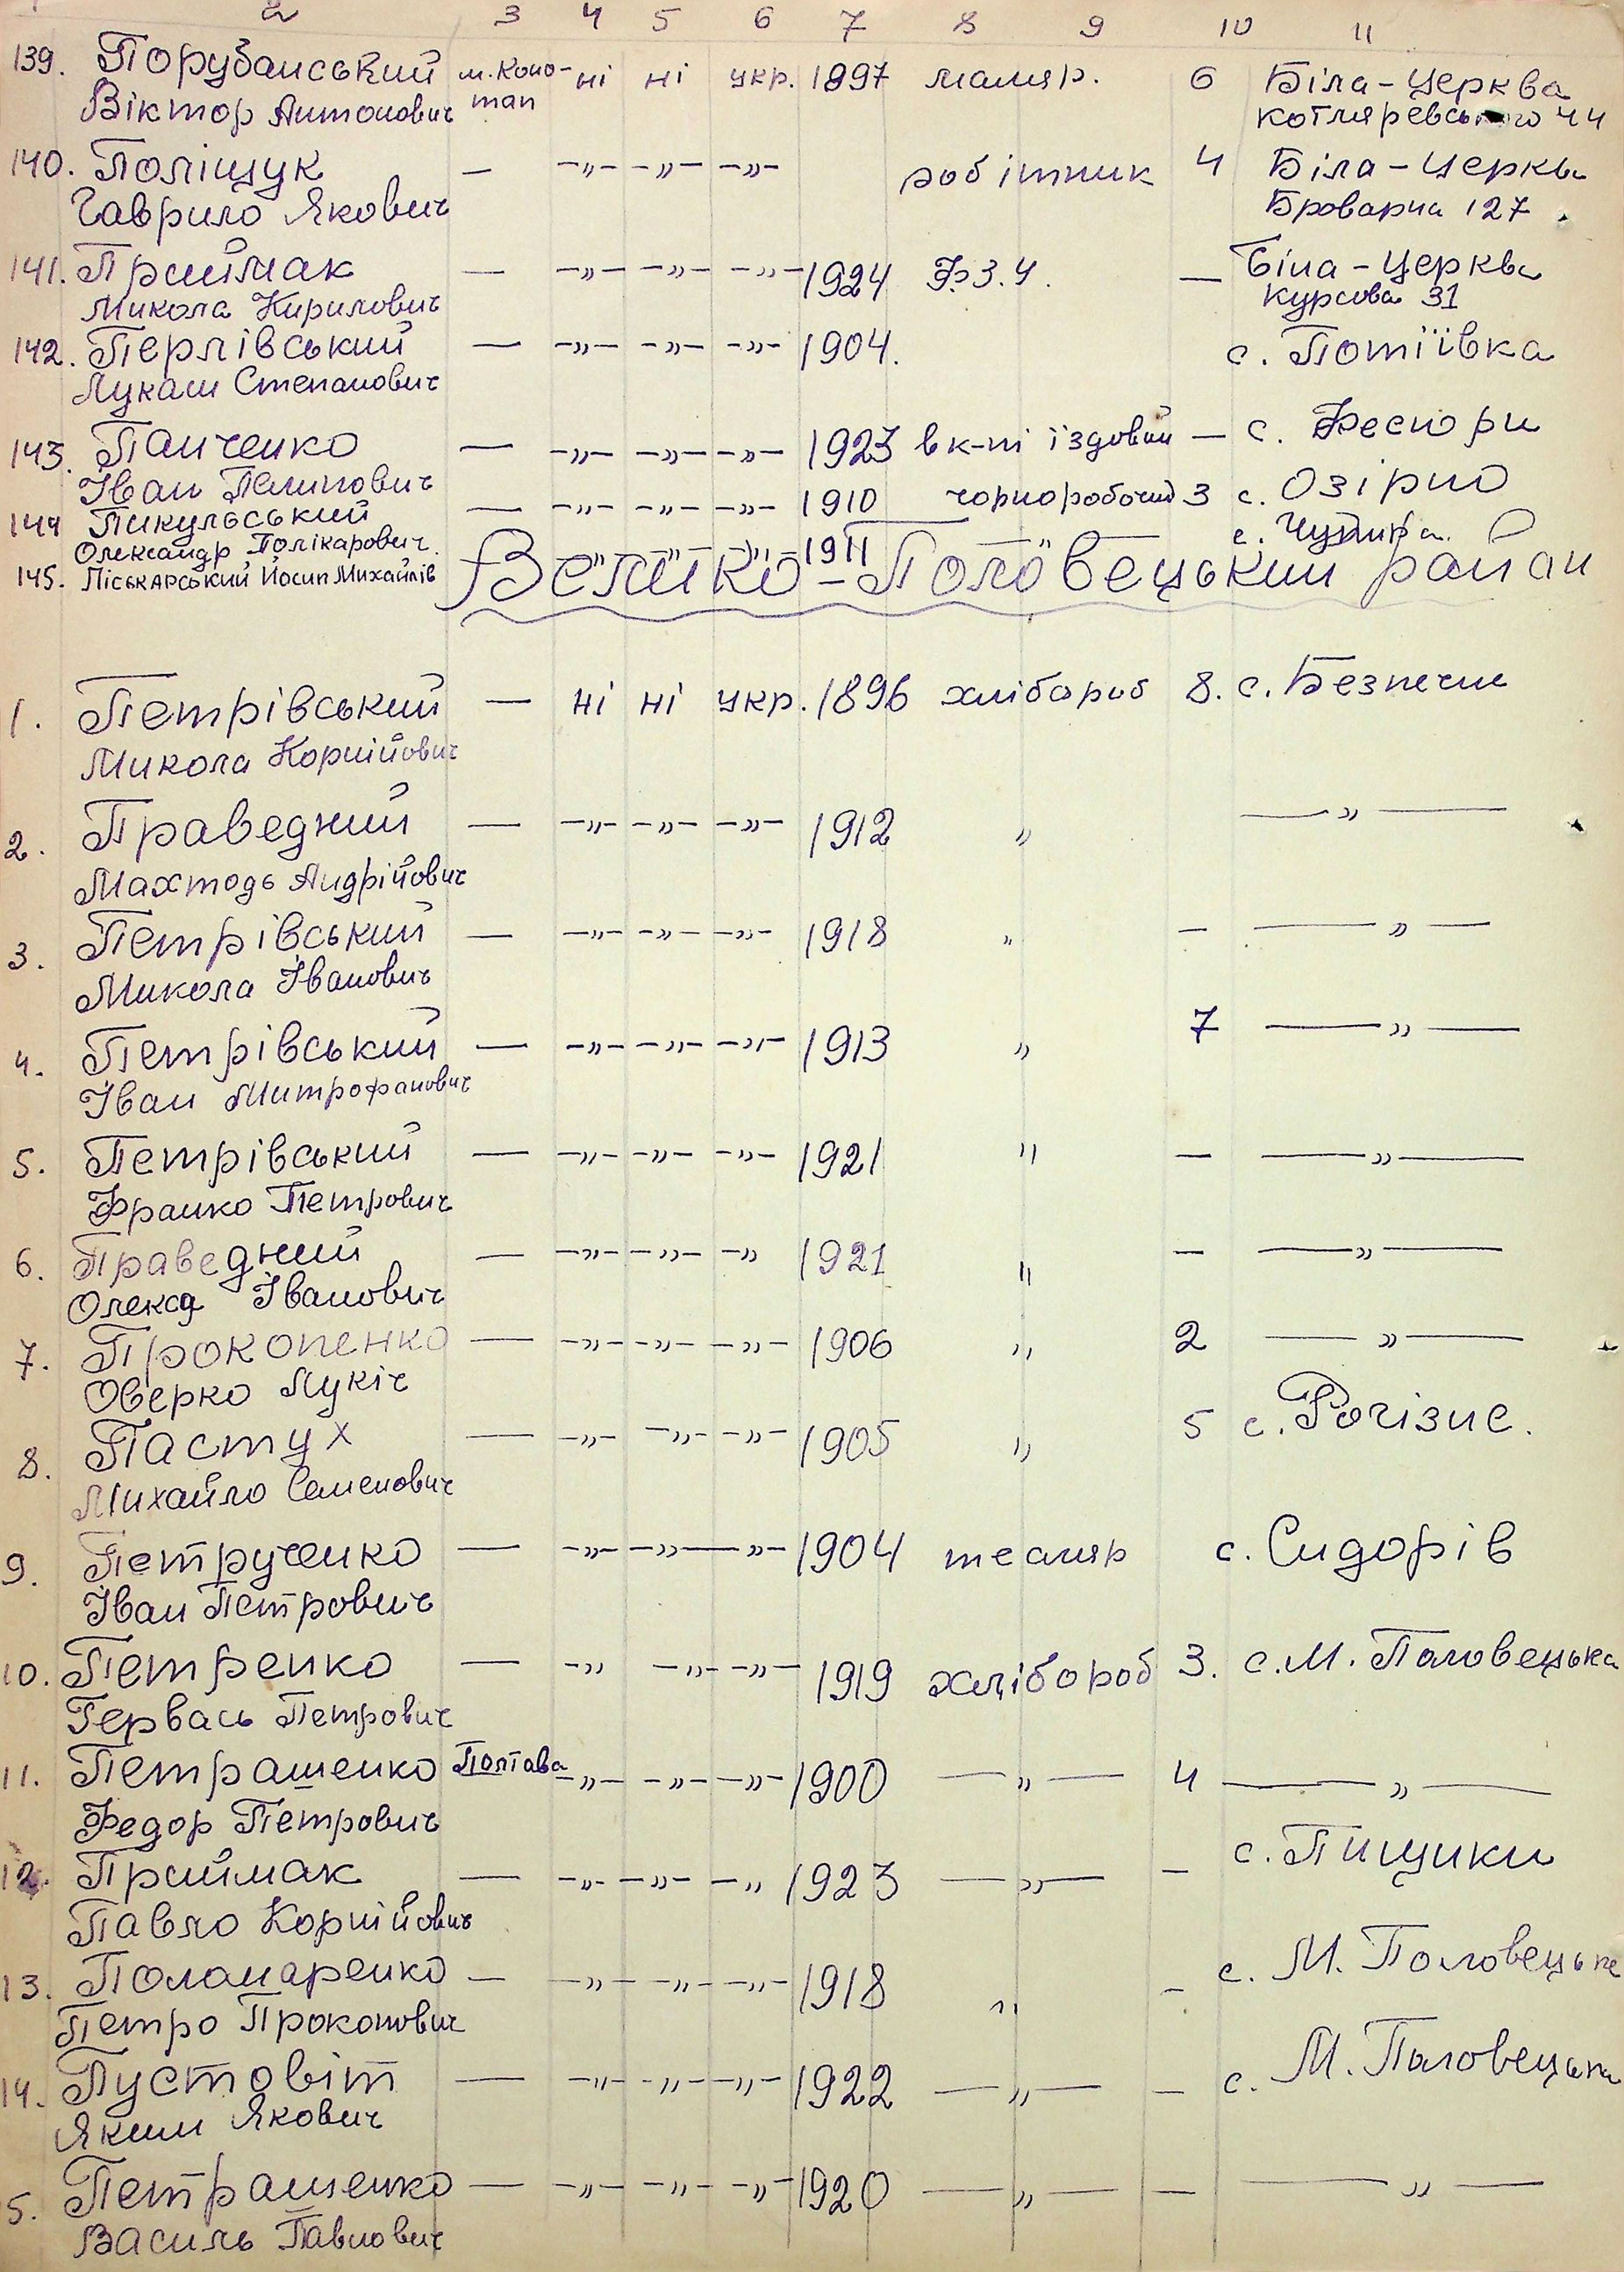 2 3 4 5 6 7 8 9 10 11
139. Порубанський м. Коно- ні ні укр. 1897 маляр. 6 Біла-Церква
Віктор Антонович топ 44
140. Поліщук — -"- -"- -"- робітник 4 Біла-Церква
Гаврило Якович Броварна 127
141. Приймак — -"- -"- -"- 1924 Ф.З.У. — Біла-Церква
Микола Кирилович Курсова 31
142. Перлівський — -"- -"- -"- 1904. с. Потіївка
Лукаш Степанович
143. Панченко — -"- -"- -"- 1923 в к-пі їздовий — с. Фесюри
Іван Пилипович
144 Пикульський — -"- -"- -"- 1910 чорноробочий 3 с. Озірно
Олександр Полікарович.
145. Піськарський Йосип Михайлів " " " 1911 " с.
Велико-Половецький район
1. Петрівський — ні ні укр. 1896 хлібороб 8. с. Безпечне
Микола Корнійович
2. Праведний — -"- -"- -"- 1912 " —"—
Махтодь Андрійович
3. Петрівський — -"- -"- -"- 1918 " — —"—
Микола Іванович
4. Петрівський — -"- -"- -"- 1913 " 7 —"—
Іван Митрофанович
5. Петрівський — -"- -"- -"- 1921 " — —"—
Франко Петрович
6. Праведний — -"- -"- -" 1921 " — —"—
Олекса Іванович
7. Прокопенко — -"- -"- -"- 1906 " 2 —"—
Оверко Лукіч
8. Пастух — -"- -"- -"- 1905 " 5 с. Рогізне.
Михайло Семенович
9. Петрученко — -"- -"- -"- 1904 тесляр с. Сидорів
Іван Петрович
10. Петренко — -" -"- -"- 1919 хлібороб 3. с. М. Половецька
Гервась Петрович
11. Петрашенко Полтава -"- -"- -"- 1900 —"— 4 —"—
Федор Петрович
12. Приймак — -"- -"- -" 1923 —"— — с. Пищики
Павло Корнійович
13. Поломаренко — -"- -"- -"- 1918 " — с. М. Половецьке
Петро Прокопович
14. Пустовіт — -"- -"- -"- 1922 —"— — с. М. Половецька
Яким Якович
5. Петрашенко — -"- -"- -"- 1920 —"— — —"—
Василь Павлович